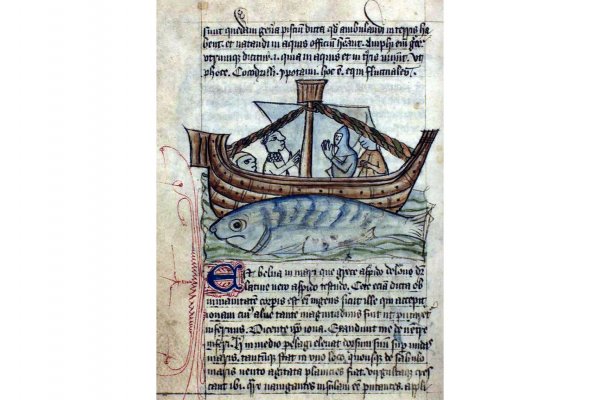 sunt quedam gen̄a pisciū dicta qđ ambulandi in terris ha
bent. et natandi in aquis officiū h̄eant. Amphi em̄ gre
utrumque dicitur .i. quia in aquis et in t̄ris vivūt. Vt
phoce. Cocodrilli. ypotami. hoc ē. equi fluctuales.
Est belua in mari que grece aspido delone dr̄
latine vero aspido testudo. Cete eciā dicta ob
immanitatē corꝑis est em̄ ingens sicut ille qui excepit
ionam cui᷒ alv᷒ tante magnitudinis fuit ut putaret᷑
infernus. Dicente ip̄o iona. Exaudivit me de ventre
inferi. in medio pelagi elevat dorsum suū sup̄ undas
maris. tantūque stat in uno loco. quousque de sabulo
maris vento agitata planicies fiat. virgultaque cres
cant ibi. navigantes insulam eē putantes. appli